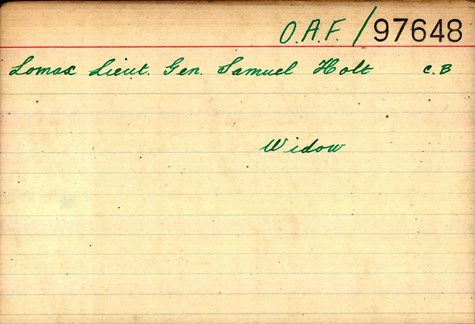 O.A.F. / 97648
Lomax Lieut. Gen. Samuel Holt C.B
Widow